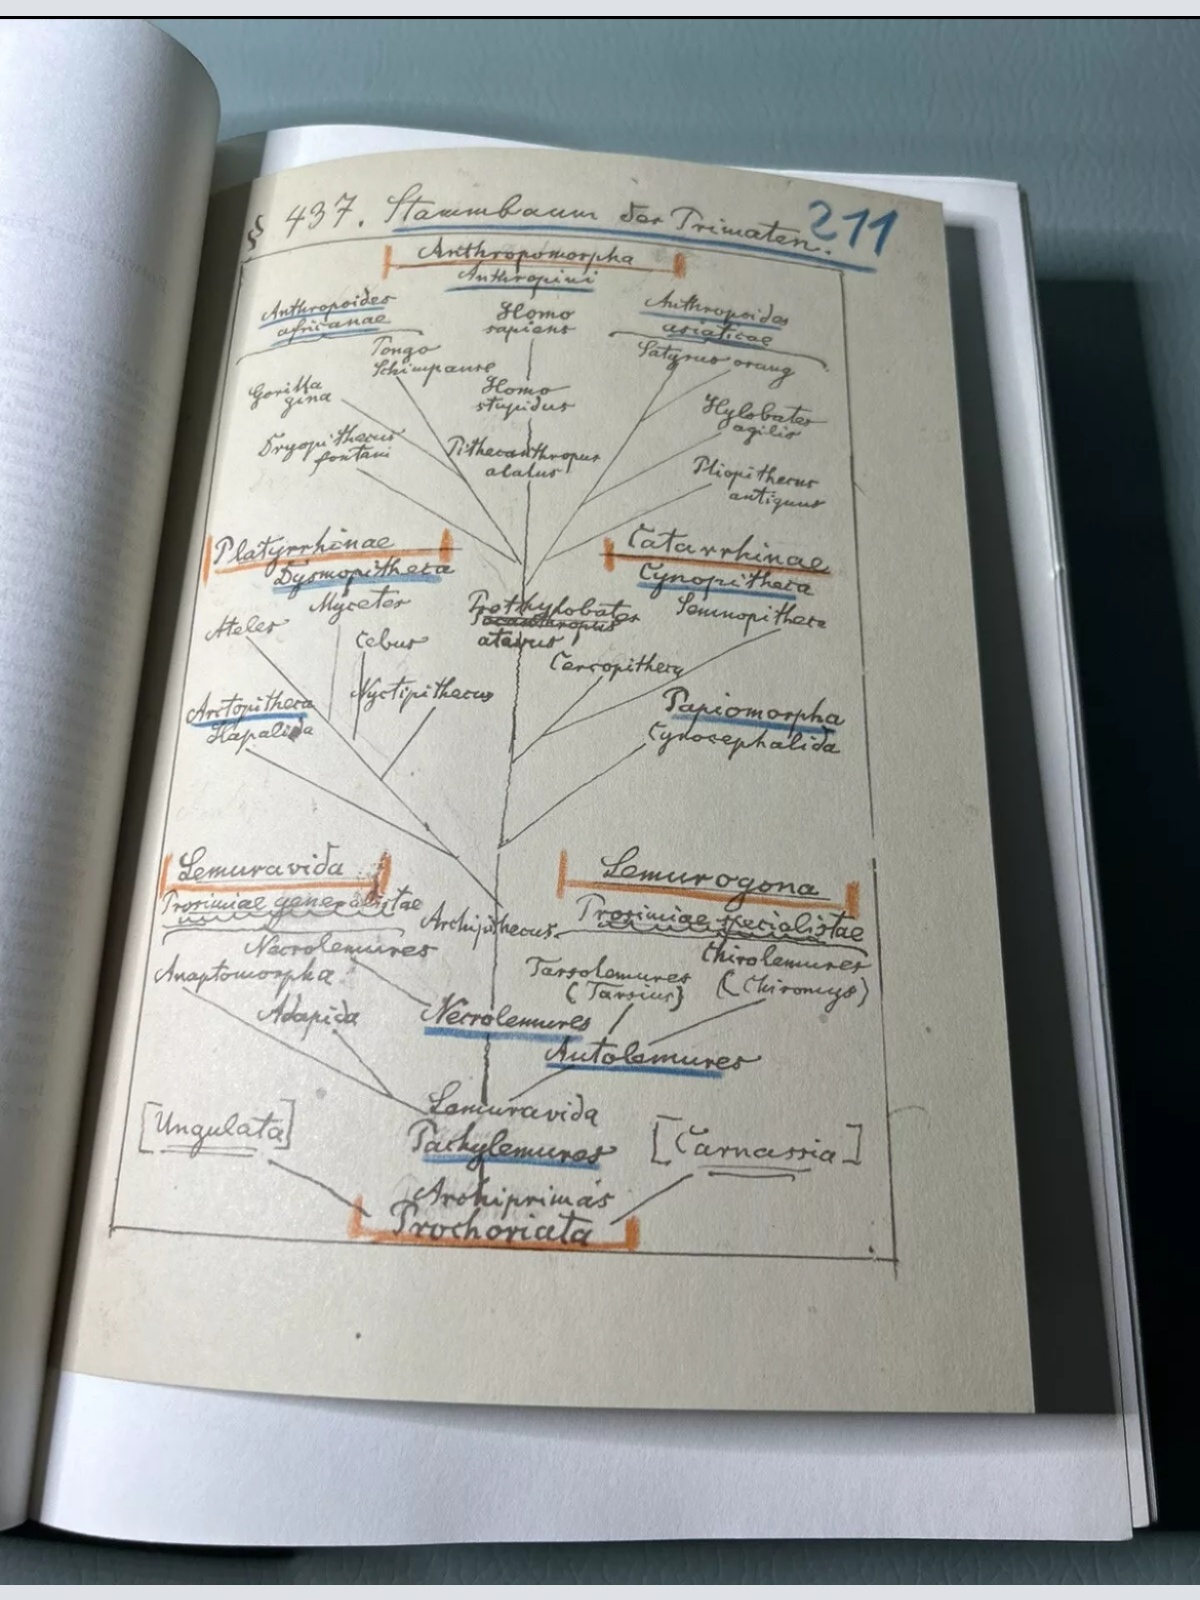 § 437. Stammbaum der Primaten. 211
Anthropomorpha
Anthropini
Anthropoides
africanae
Homo
sapiens
Anthropoides
asiaticae
Tongo
Schimpanse
Satyrus orang
Gorilla
gina
Homo
stupidus
Hylobates
agilis
Dryopithecus
fontani
Pithecanthropus
alalus
Pliopithecus
antiquus
Platyrrhinae
Dysmopitheca
Catarrhinae
Cynopitheca
Mycetes
Prothylobates
atavus
Semnopitheca
Ateles
Cebus
Cercopitheca
Nyctipithecus
Arctopitheca
Hapalida
Papiomorpha
Cynocephalida
Lemuravida
Prosimiae generalistae
Lemurogona
Prosimiae specialistae
Archipithecus
Necrolemures
Chirolemures
(Chiromys)
Anaptomorpha
Tarsolemures
(Tarsius)
Adapida
Necrolemures
Autolemures
Lemuravida
Pachylemures
[Ungulata]
[Carnassia]
Archiprimas
Prochoriata